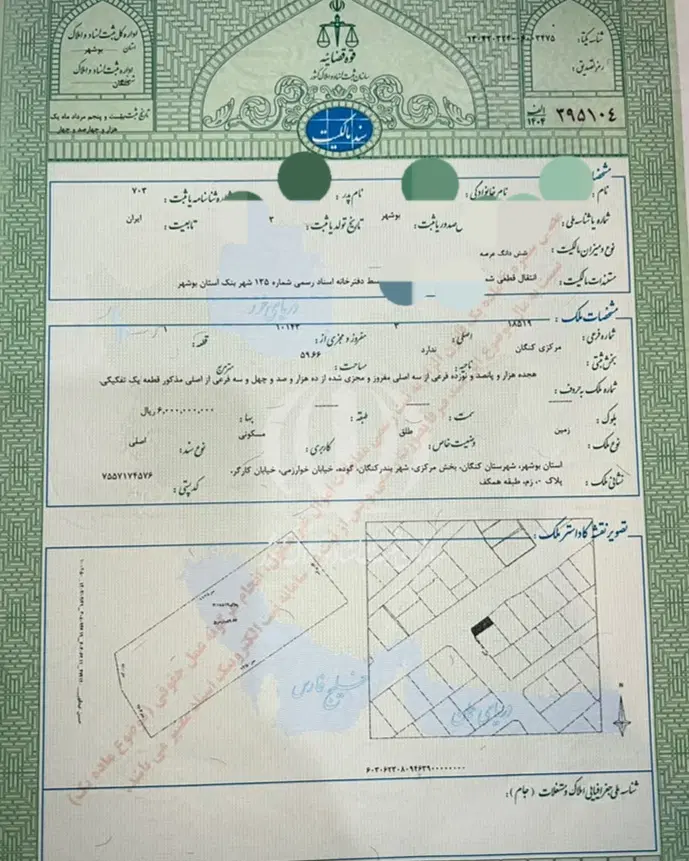 قوه قضائیه
سازمان ثبت اسناد و املاک کشور
اداره کل ثبت اسناد و املاک
استان بوشهر
اداره ثبت اسناد و املاک
کنگان
تاریخ ثبت: بیست و پنجم مرداد ماه یک
هزار و چهارصد و چهار
شناسه یکتا:
رمز تصدیق:
الف ۱۴۰۴ ۳۹۵۱۰۴
سند مالکیت
نام: نام خانوادگی: نام پدر: شماره شناسنامه یا ثبت: ۷۰۳
شماره یا شناسه ملی: صدور یا ثبت: بوشهر تاریخ تولد یا ثبت: ۲ تابعیت: ایران
نوع و میزان مالکیت: شش دانگ عرصه
مستندات مالکیت: انتقال قطعی دفترخانه اسناد رسمی شماره ۱۳۵ شهر بنک استان بوشهر
مشخصات ملک
شماره فرعی: ۱۸۵۱۹ اصلی: ۳ مفروز و مجزی از: ۱۰۱۴۳ قطعه: ۱
بخش ثبتی: مرکزی کنگان ناحیه: ندارد مساحت: ۵۹.۶۶ مترمربع
شماره ملک به حروف: هجده هزار و پانصد و نوزده فرعی از سه اصلی مفروز و مجزی شده از ده هزار و صد و چهل و سه فرعی از اصلی مذکور قطعه یک تفکیکی.
بلوک: سمت: طبقه: بها: ۶,۰۰۰,۰۰۰,۰۰۰ ریال
نوع ملک: زمین وضعیت خاص: طلق کاربری: مسکونی نوع سند: اصلی
نشانی ملک: استان بوشهر، شهرستان کنگان، بخش مرکزی، شهر بندرکنگان، گوده، خیابان خوارزمی، خیابان کارگر، پلاک ۰، زم، طبقه همکف
کد پستی: ۷۵۵۷۱۷۴۵۷۶
تصویر نقشه کاداستر ملک:
خلیج فارس
دریای عمان
دریای خزر
N
۶۰۳۰۶۲۳۰۸۰۹۴۶۳۹۰۰۰۰۰۰۰۰
شناسه ملی جغرافیایی املاک و مستغلات (جام):